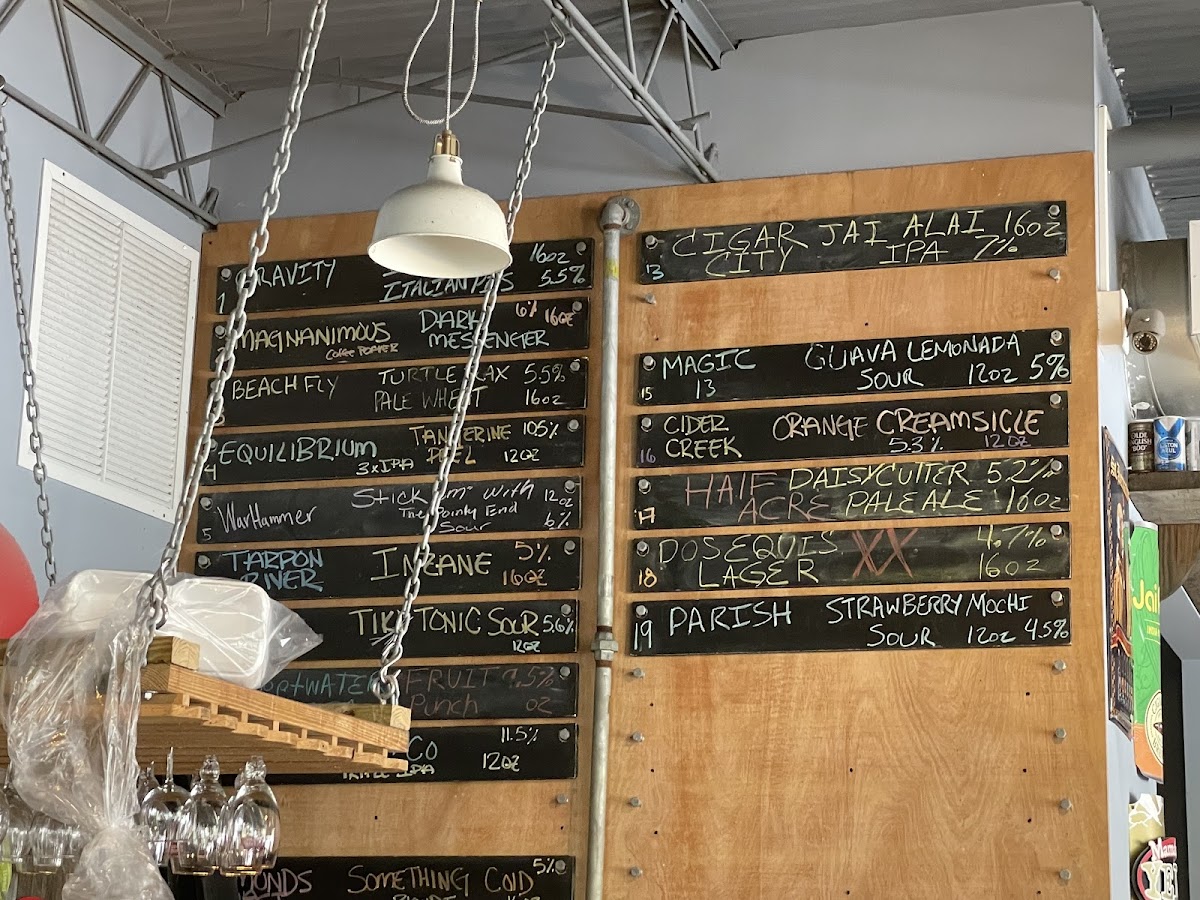 1 GRAVITY 16oz
ITALIAN PILS 5.5%
MAGNANIMOUS DARK 6% 16oz
COFFEE PORTER MESSENGER
BEACH FLY TURTLE WAX 5.5%
PALE WHEAT 16oz
4 EQUILIBRIUM TANGERINE 10.5%
3xIPA PEEL 12oz
5 WarHammer Stick 'em with 12oz
The Pointy End 6%
Sour
TARPON INSANE 5%
RIVER 16oz
TIKI TONIC SOUR 5.6%
12oz
FRUIT 9.5%
Punch oz
CO 11.5%
12oz
IPA
SOMETHING COLD 5%
CIGAR JAI ALAI 16oz
13 CITY IPA 7%
15 MAGIC GUAVA LEMONADA
13 SOUR 12oz 5%
CIDER ORANGE CREAMSICLE
16 CREEK 5.3% 12oz
HALF DAISYCUTTER 5.2%
17 ACRE PALE ALE 16oz
DOS EQUIS XX 4.7%
18 LAGER 16oz
19 PARISH STRAWBERRY MOCHI
SOUR 12oz 4.5%